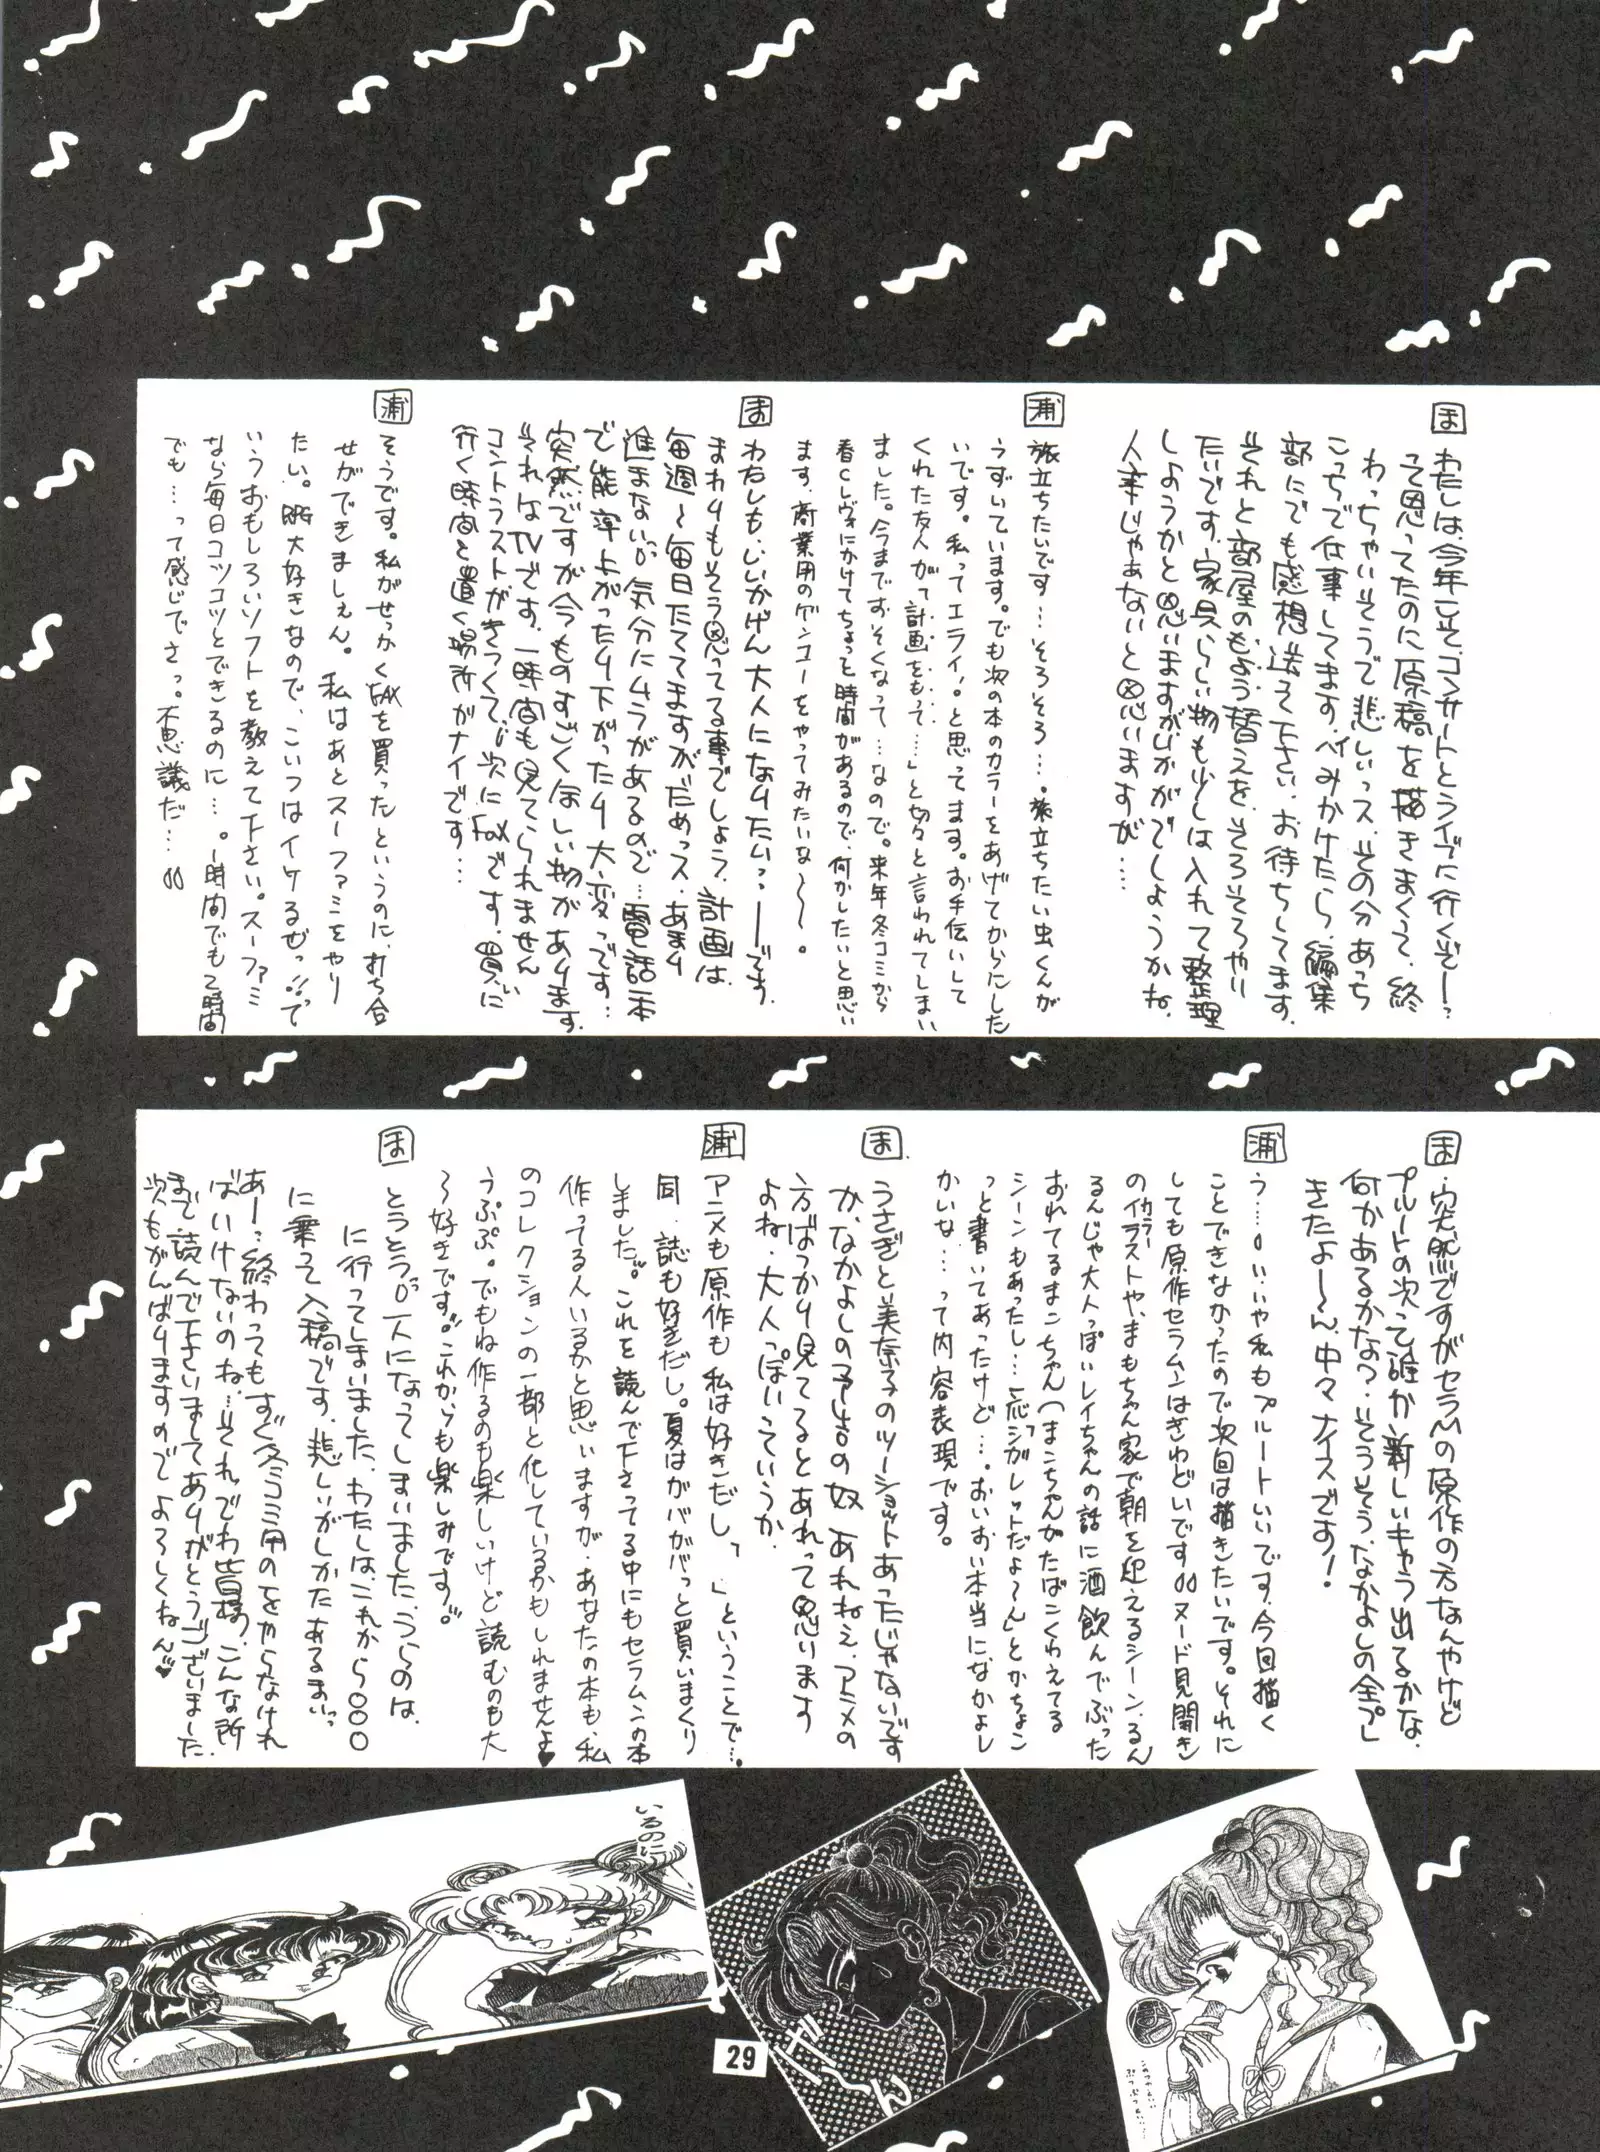 ま
わたしは、今年一立て、コンサートとライブに行くぞーっ
って思ってたのに原稿を描きまくって、終
わっちゃいそうで悲しいっス、その分あっち
こっちで仕事してます。ハイみかけたら、編集
部にでも感想送って下さい、お待ちしてます。
それと部屋のもよう替えを、そろそろやり
たいです。家具らしい物も少しは入れて整理
しようかと思いますがいかがでしょうかね。
人事じゃあないと思いますが…
浦
旅立ちたいです…そろそろ…。旅立ちたい虫くんが
うずいています。でも次の本のカラーをあげてからにした
いです。私ってエライ。と思ってます。お手伝いして
くれた友人が「計画をもって……」と切々と言われてしまい
ました。今までおそくなって…なので。来年冬コミから
春Cレヴォにかけてちょっと時間があるので、何かしたいと思い
ます。商業用のゲンコーをやってみたいな〜〜。
ま
わたしも、いいかげん大人になりたいっ──です。
まわりもそう思ってる事でしょう、計画は
毎週〜毎日たててますがだめっス、あまり
進まない。気分にムラがあるので…電話一本
で能率上がったり下がったり大変っです…
突然ですが今ものすごくほしい物があります
それはTVです、一時間も見てられません
コントラストがきつくて、次にFAXです、買いに
行く時間と置く場所がナイです…
浦
そうです。私がせっかくFAXを買ったというのに、打ち合
せができましぇん。私はあとスーファミをやり
たい。RPG大好きなので、こいつはイケるぜっ!!って
いうおもしろいソフトを教えて下さい。スーファミ
なら毎日コツコツとできるのに…。1時間でも2時間
でも…って感じでさっ。不思議だ…
ま
突然ですがセラMの原作の方なんやけど
プルートの次って誰か新しいキャラ出るかな、
何かあるかな?、そうそう、なかよしの全プレ
きたよ〜〜ん、中々ナイスです!
浦
う……い、いや私もプルートいいです。今回描く
ことできなかったので次回は描きたいです。それに
しても原作セラムンはきわどいです ヌード見開き
のカラーイラストや、まもちゃん家で朝を迎えるシーン、るん
るんじゃ大人っぽいレイちゃんの話に酒飲んでぶった
おれてるまこちゃん(まこちゃんがたばこくわえてる
シーンもあったし…「応っシガレットだよ〜ん」とかちょこ
っと書いてあったけど…。おいおい本当に、なかよし
かいな…って内容表現です。
ま
うさぎと美奈子のツーショットあったじゃないです
か、なかよしの 奴 あれねぇ、アニメの
方ばっかり見てるとあれって思います
よね、大人っぽいっていうか
浦
アニメも原作も私は好きだし、「 」ということで…。
同誌も好きだし。夏はガバガバっと買いまくり
しました。これを読んで下さってる中にもセラムンの本
作ってる人いるかと思いますが、あなたの本も、私
のコレクションの一部と化しているかもしれませんよ♥
うぷぷ。でもね作るのも楽しいけど読むのも大
〜好きです。これからも楽しみです。
ま
とうとう一人になってしまいました、うらのは、
に行ってしまいました、わたしは、これから〇〇〇
に乗って入稿です、悲しいがしかたあるまいっ
あーっ終わってもすぐ冬コミ用のをやらなけれ
ばいけないのね…それでわ皆様、こんな所
まで、読んで下さいましてありがとうございました
次もがんばりますのでよろしくねん♥
いるのに
29